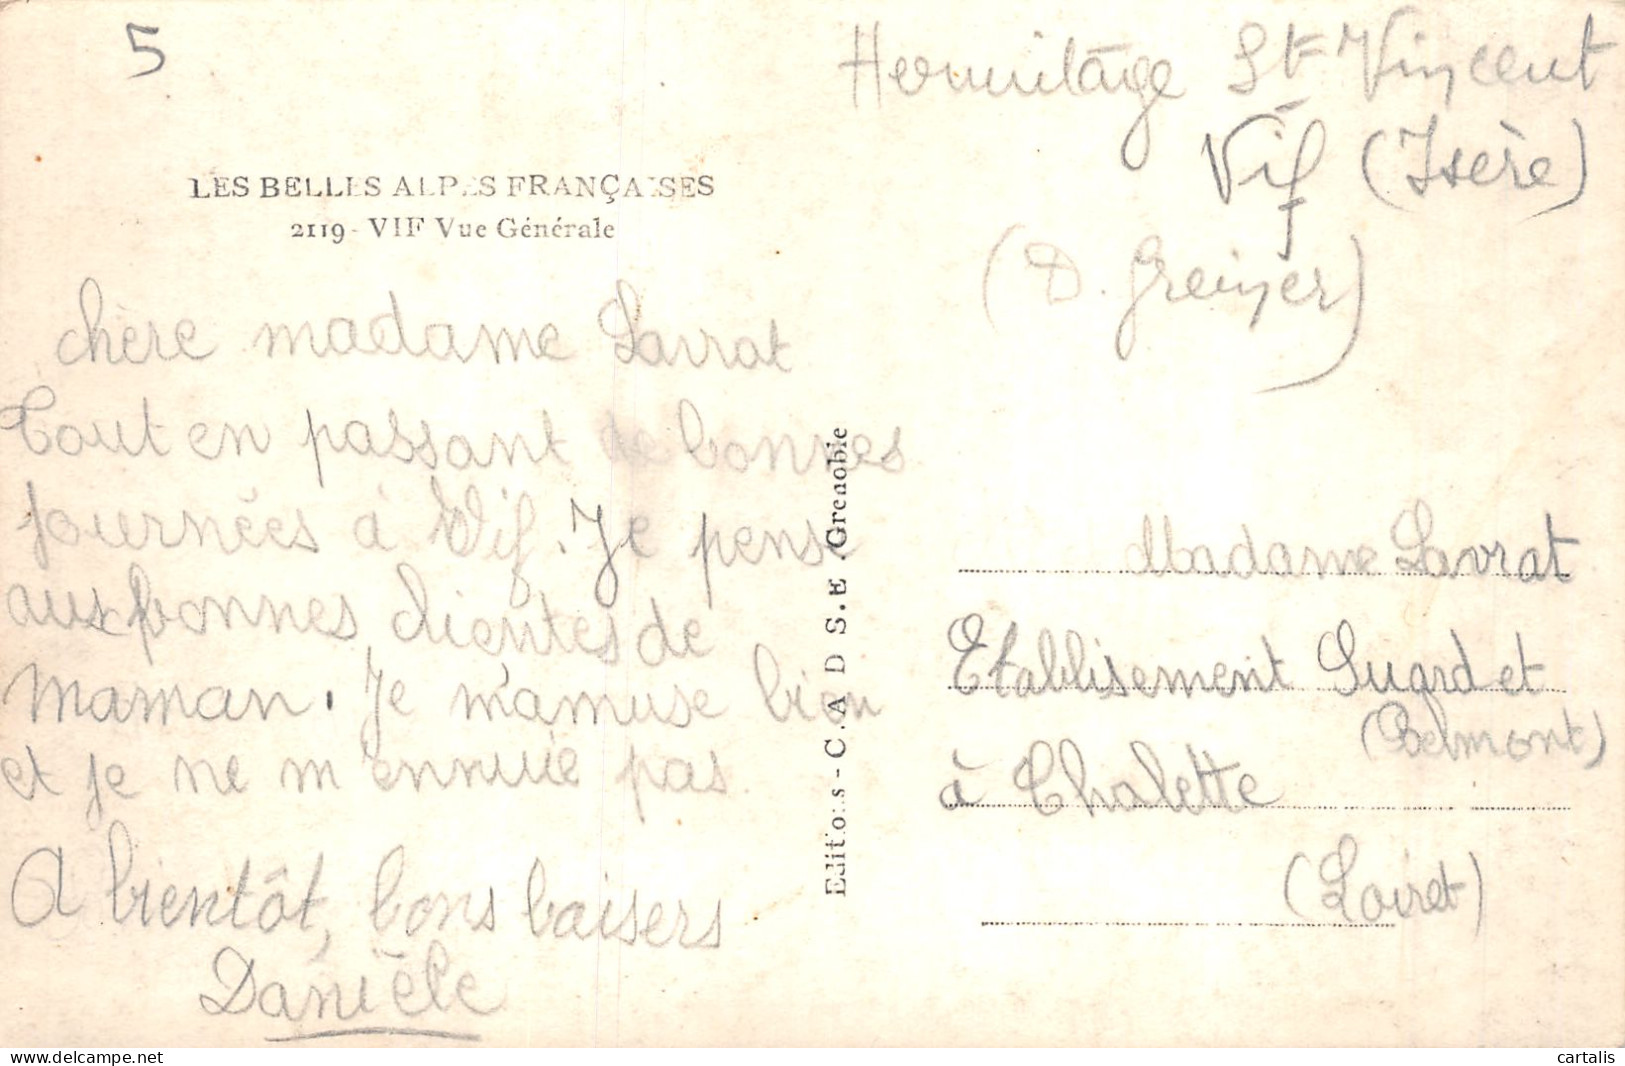 5
Hermitage St Vincent
Vif (Isère)
(D. Greiner)
LES BELLES ALPES FRANÇAISES
2119 - VIF Vue Générale
chère madame Lavrat
Tout en passant de bonnes
journées à Vif. Je pense
aux bonnes clientes de
maman. Je m'amuse bien
et je ne m'ennuie pas.
A bientôt, bons baisers
Danièle
Editions - C. A D S. E. Grenoble
Madame Lavrat
Etablisement Sugrd et
(Belmont)
à Chalette
(Loiret)
cartalis